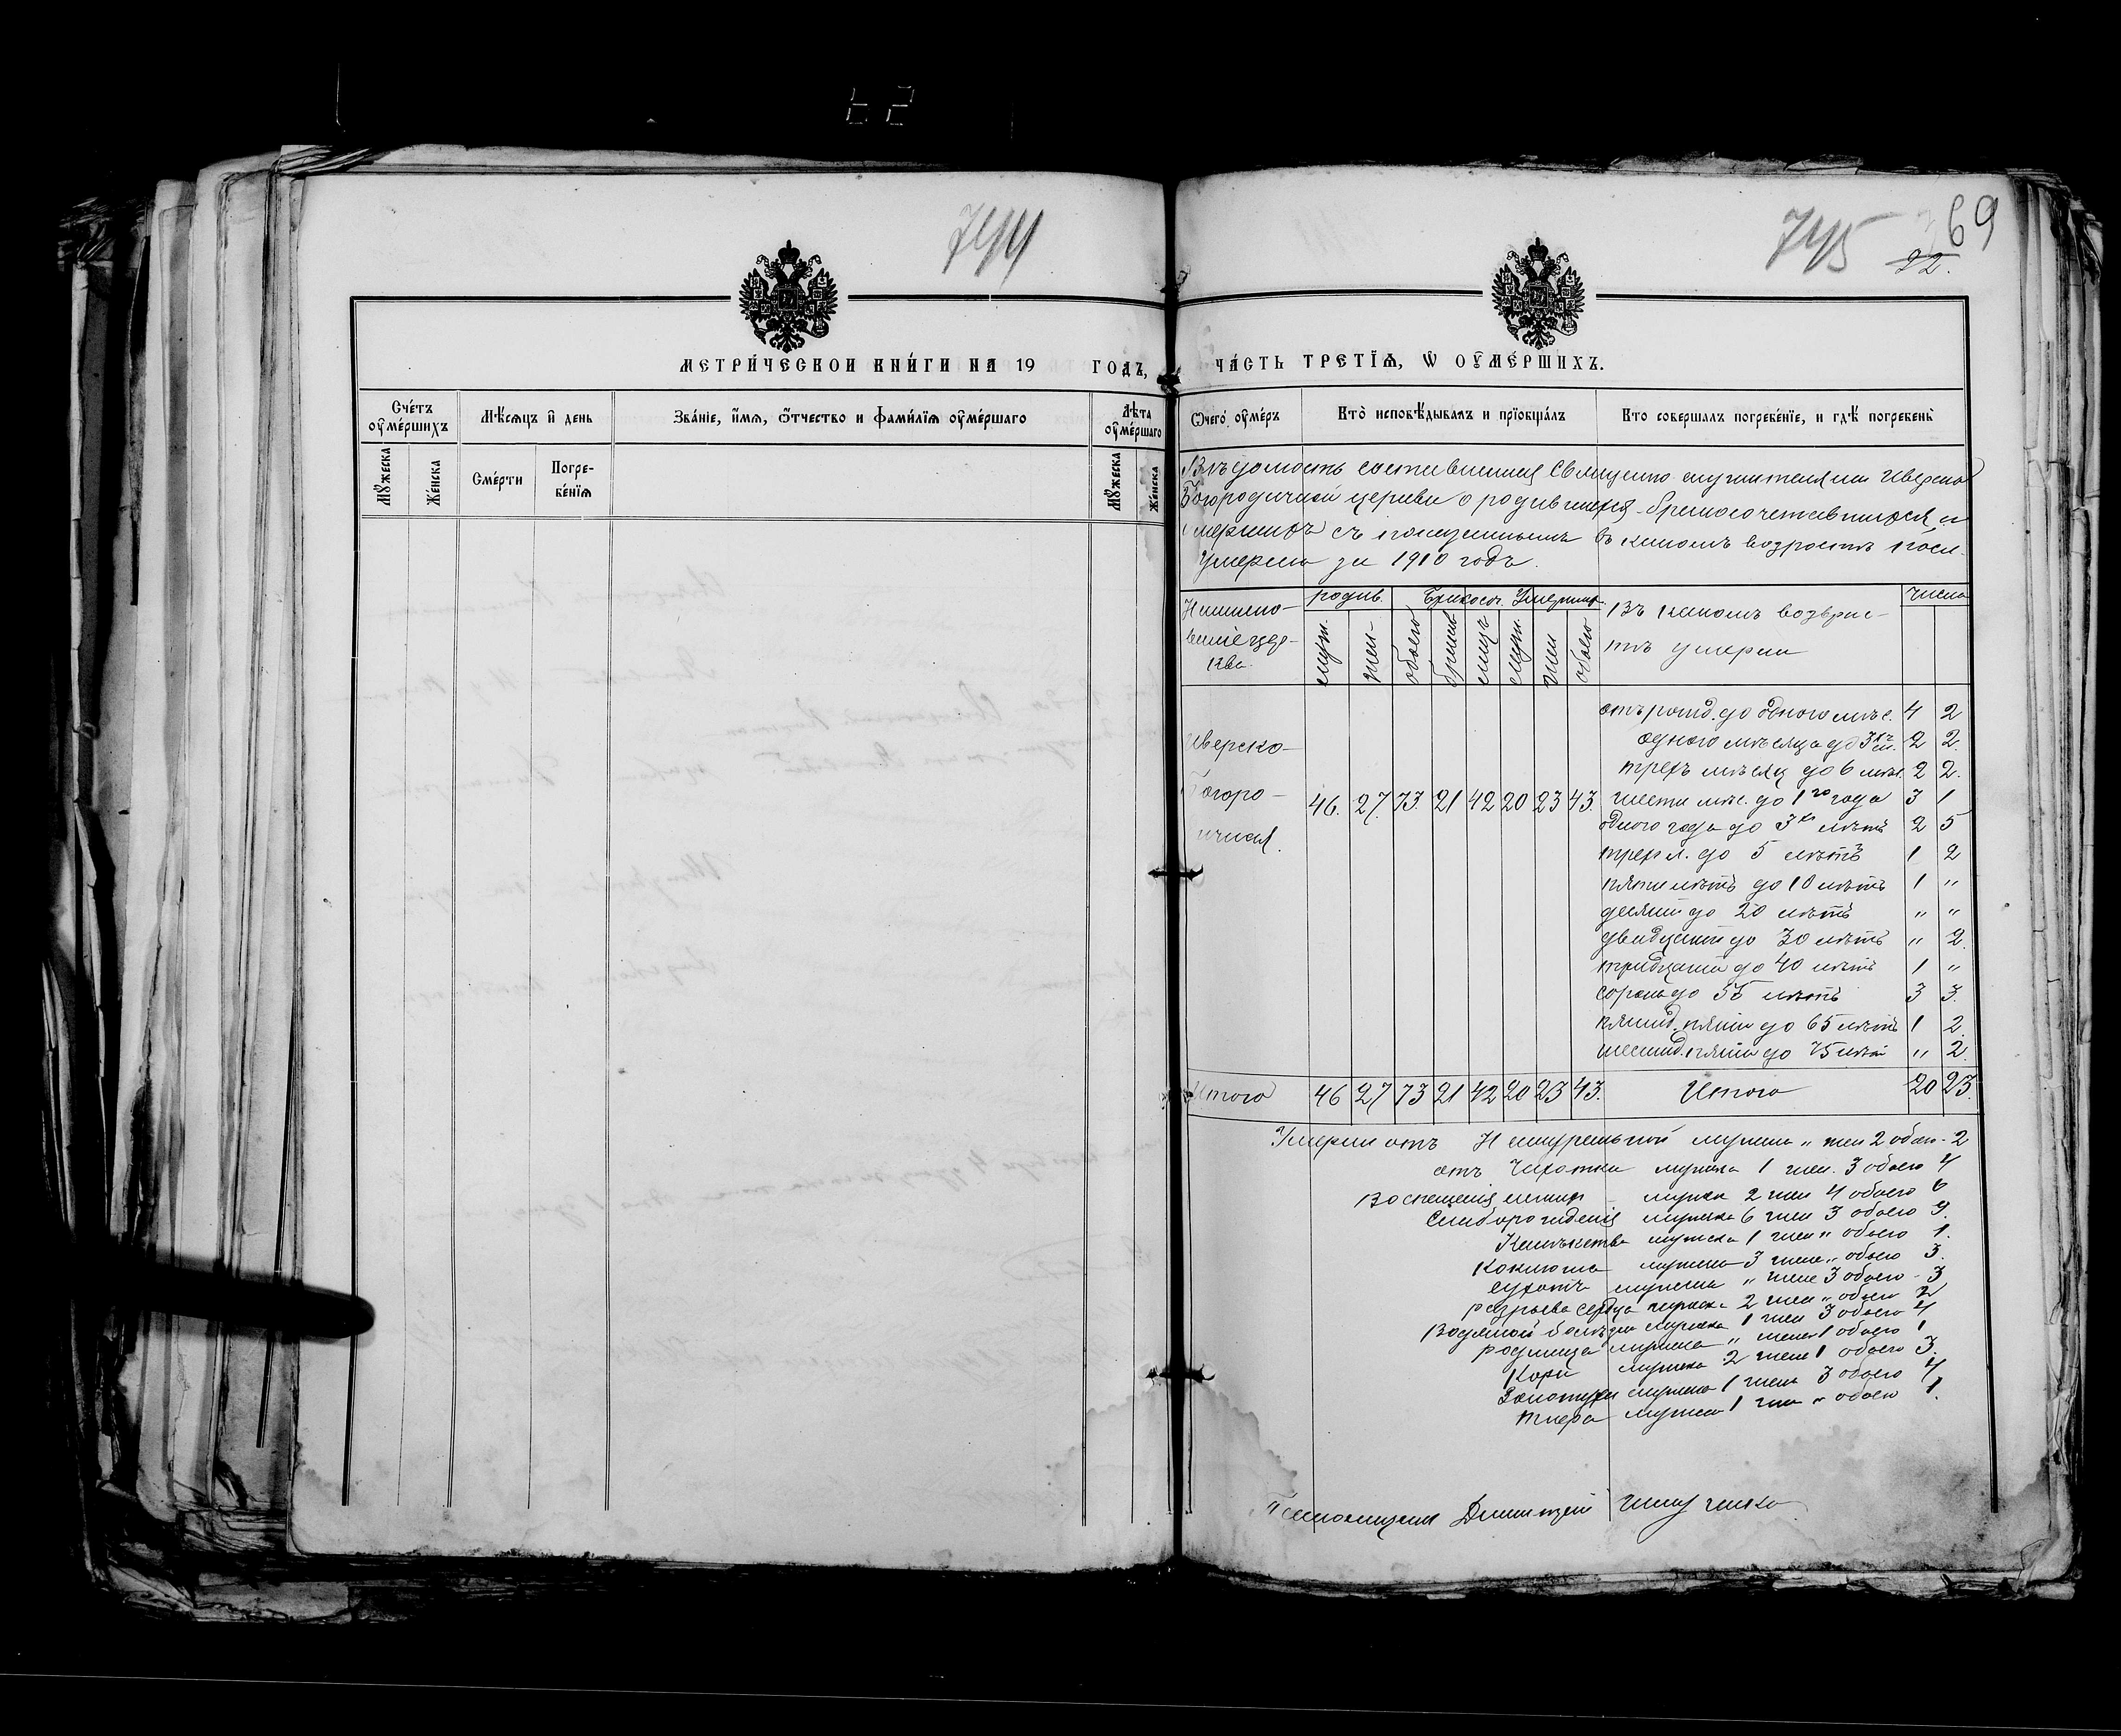 744
745
69
22.
МЕТРИ́ЧЕСКОИ КНИ́ГИ НА 19 ГОДЪ,
ЧА́СТЬ ТРЕТЇѦ, Ѡ ОУМЕ́РШИХЪ.
Сче́тъ оуме́ршихъ
Мѣ́сѧцъ и день
Зва́нїе, и́мѧ, ѻ́тчество и фами́лїѧ оуме́ршаго
Лѣта оуме́ршаго
Мꙋ́жеска
Же́нска
Сме́рти
Погребе́нїѧ
Мꙋ́жеска
Же́нска
Ѿчегѡ̀ оу́меръ
Кто̀ исповѣ́дывалъ и прїѡбща́лъ
Кто соверша́лъ погребе́нїе, и гдѣ̀ погребены̀
Вѣдомость составленная Священно служителями Иверско
Богородичной церкви о родившихся - бракосочетавшихся и
умершихъ съ показаниемъ въ какомъ возрастѣ
умерли за 1910 годъ.
Наимено-
ваніе цер-
кви.
родив.
Бракосоч.
Умерших.
муж.
жен.
обоего
браков
лицъ
муж.
жен
обоего
Въ какомъ возврас-
тѣ умерли
Число
Иверско-
Богоро-
ичная.
46. 27. 73. 21 42 20 23 43.
отъ рожд. до одного мѣс. 4 2
одного мѣсяца до 3хъ м. 2 2.
трехъ мѣсяц до 6 мѣс. 2 2.
шести мѣс. до 1го года 3 1
одного года до 3хъ лѣтъ 2 5
трех л. до 5 лѣтъ 1 2
пяти лѣтъ до 10 лѣтъ 1 "
десяти до 20 лѣтъ " "
двадцати до 30 лѣтъ " 2.
тридцати до 40 лѣтъ 1 "
сорока до 55 лѣтъ 3 3.
пятид. пяти до 65 лѣтъ 1 2.
шестид. пяти до 75 лѣтъ " 2.
Итого 46 27 73 21 42 20 23 43. Итого 20 23.
Умерли отъ Натуральной мужска " жен 2 обоег - 2
отъ Чахотки мужска 1 жен. 3 обоего 4
Воспаленія легких мужск 2 жен 4 обоего 6
Слаборожденія мужска 6 жен 3 обоего 9.
мужска 1 жен " обоего 1.
Коклюша мужска 3 женс " обоего 3.
сухотъ мужска " женс 3 обоего - 3
разрыва сердца мужска 2 жен " обоего 2
Водяной болѣзни мужска 1 жен 3 обоего 4
родимца мужска " женск 1 обоего 1
Кори мужска 2 женс 1 обоего 3.
Золотухи мужска 1 женс 3 обоего 4
тифа мужска 1 жен " обоего 1.
Псаломщикъ Димитрій